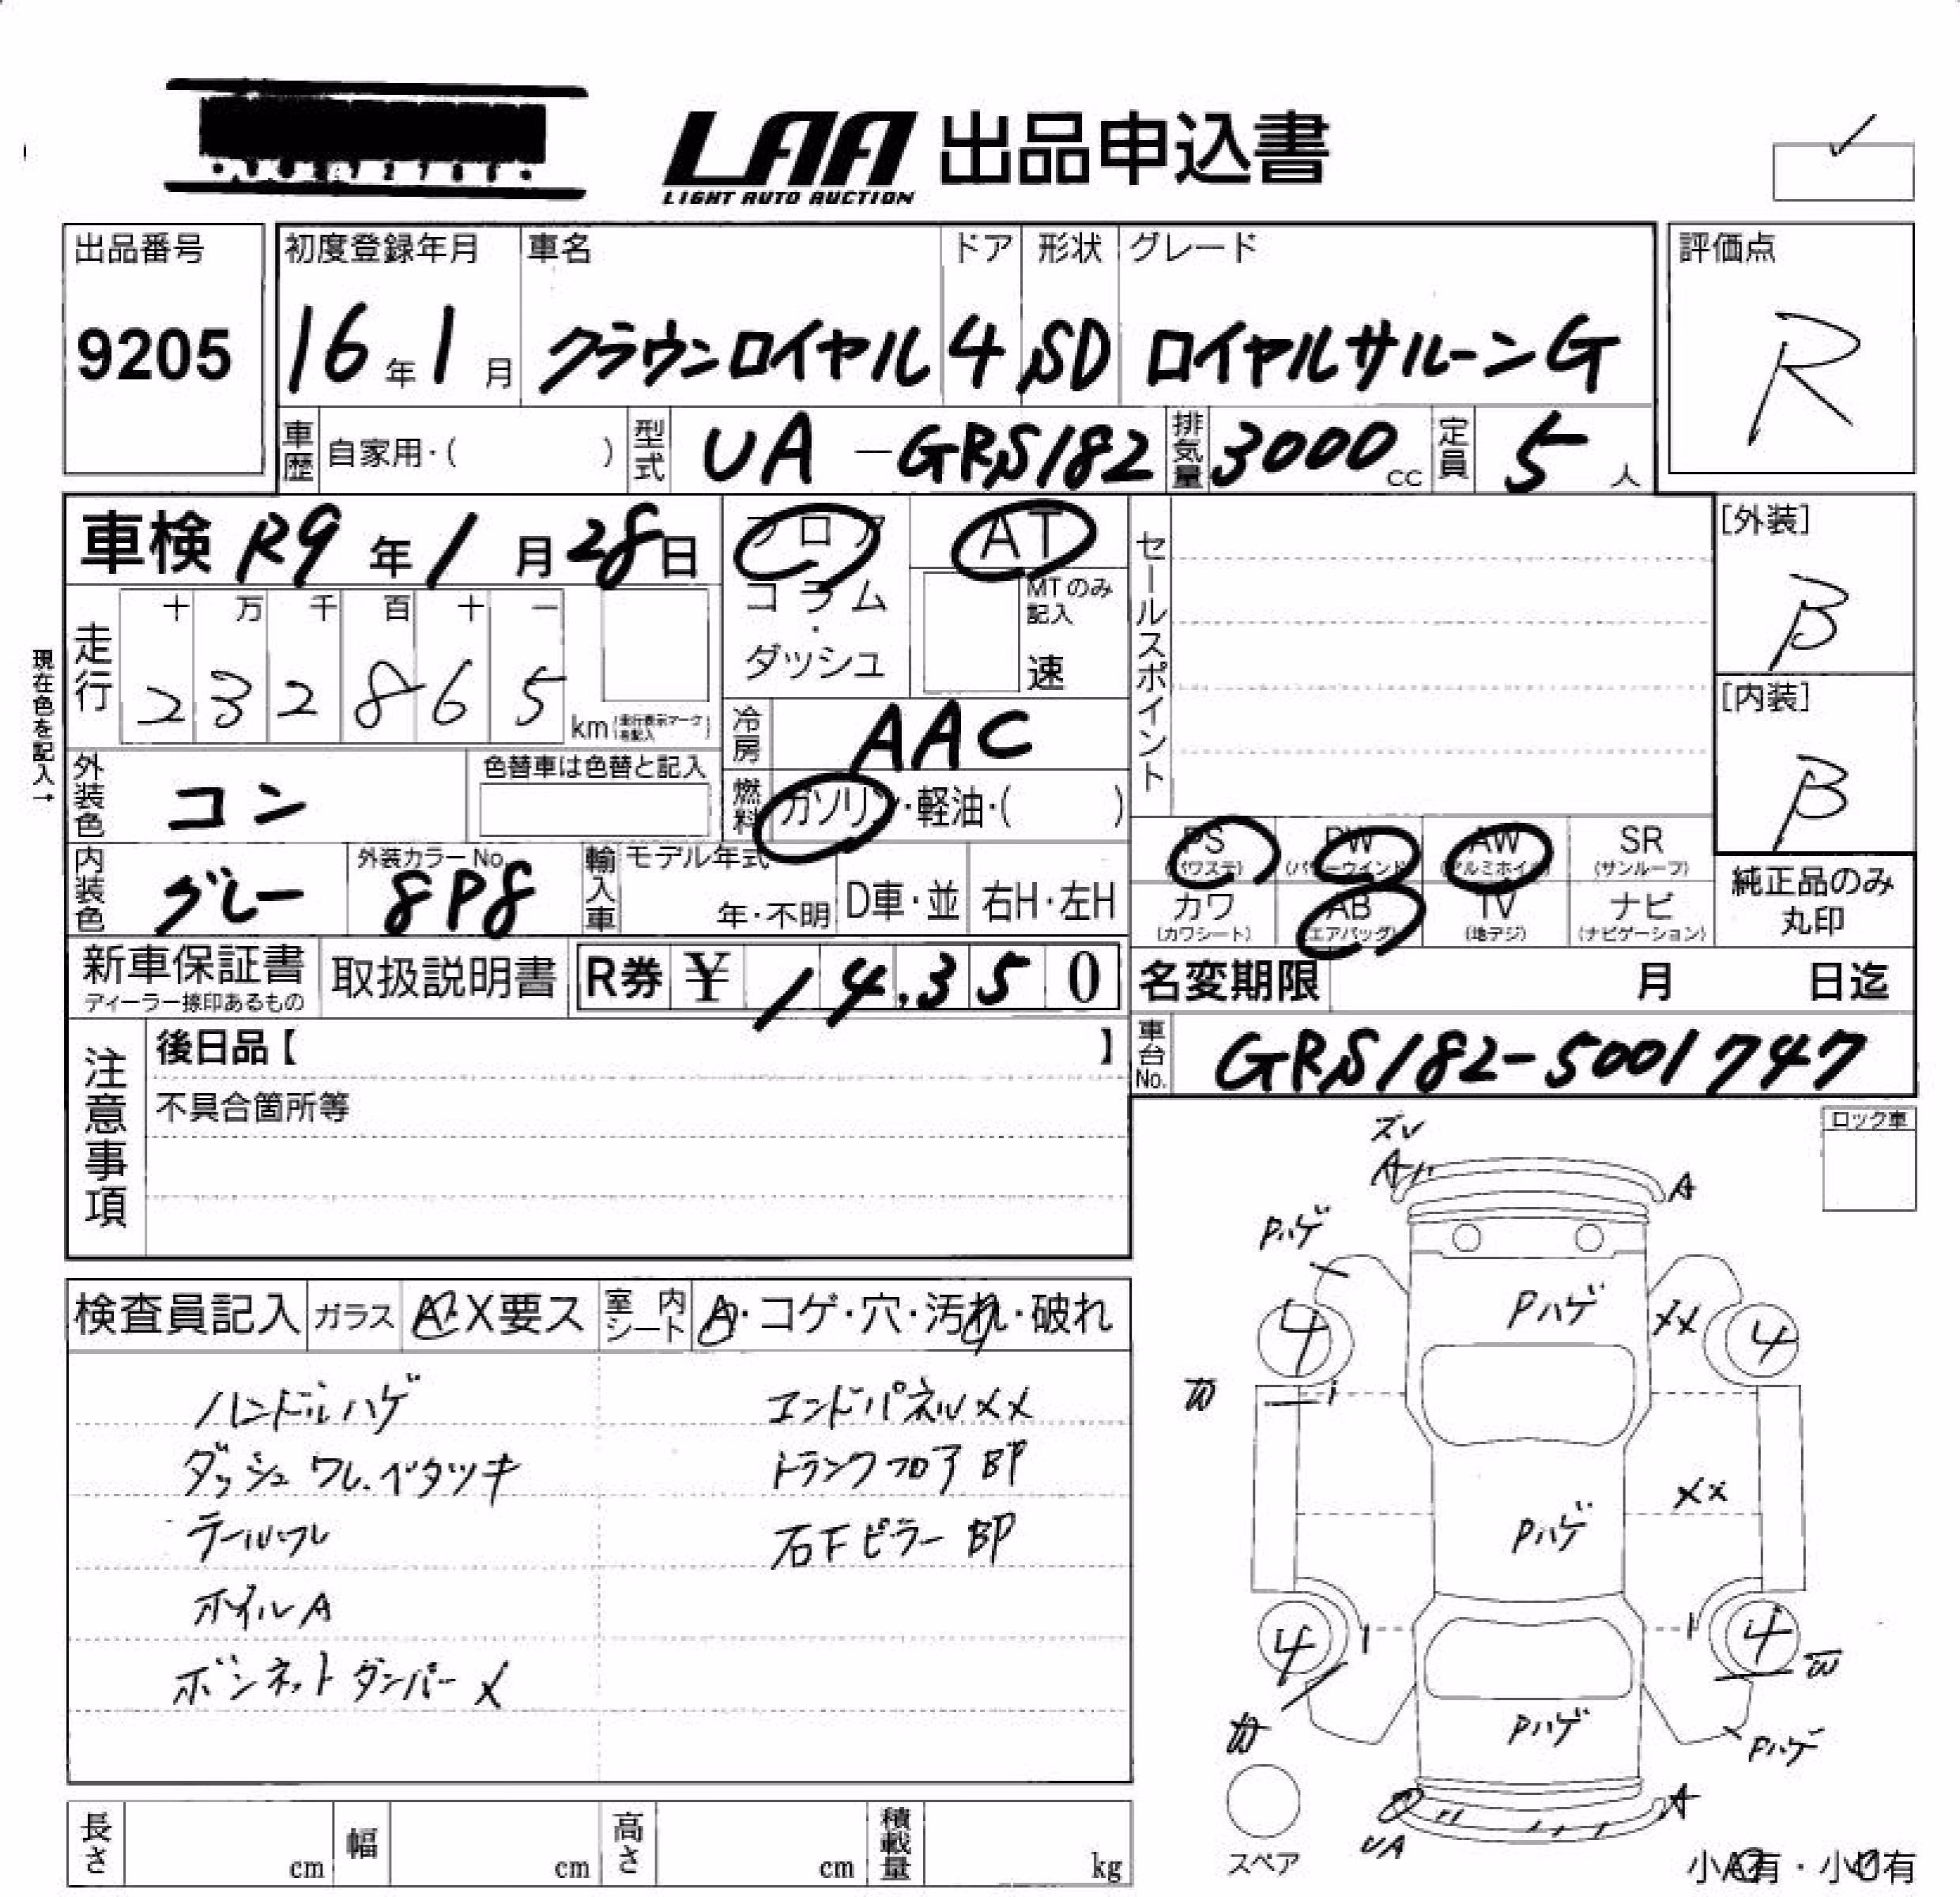 LAA 出品申込書
LIGHT AUTO AUCTION
出品番号
9205
初度登録年月 車名 ドア 形状 グレード
16年1月 クラウンロイヤル 4 SD ロイヤルサルーンG
評価点
R
車歴 自家用・( ) 型式 UA-GRS182 排気量 3000cc 定員 5人
車検 R9年1月28日
フロア・コラム・ダッシュ
AT
MTのみ記入
速
セールスポイント
[外装]
B
[内装]
B
現在色を記入→
走行 十 万 千 百 十 一
232865 km
冷房 AAC
外装色 コン 色替車は色替と記入
燃料 ガソリン・軽油・( )
内装色 グレー 外装カラーNo. 8P8
輸入車 モデル年式 年・不明 D車・並 右H・左H
PS (パワステ) PW (パワーウインド) AW (アルミホイル) SR (サンルーフ)
カワ (カワシート) AB (エアバッグ) TV (地デジ) ナビ (ナビゲーション)
純正品のみ
丸印
新車保証書 取扱説明書 R券 ¥ 14.350
ディーラー捺印あるもの
名変期限 月 日迄
車台No. GRS182-5001747
注意事項
後日品【 】
不具合箇所等
ロック車
検査員記入 ガラス A・X要ス 室内シート A・コゲ・穴・汚れ・破れ
ハンドルハゲ エンドパネルXX
ダッシュワレ.ベタツキ トランクフロアBP
テールワレ 右下ピラーBP
ホイルA
ボンネットダンパーX
ズレ
A A
Pハゲ
Pハゲ XX
4 4
XX
Pハゲ
4 4
Pハゲ Pハゲ
UA A
スペア
小A有・小U有
長さ cm 幅 cm 高さ cm 積載量 kg